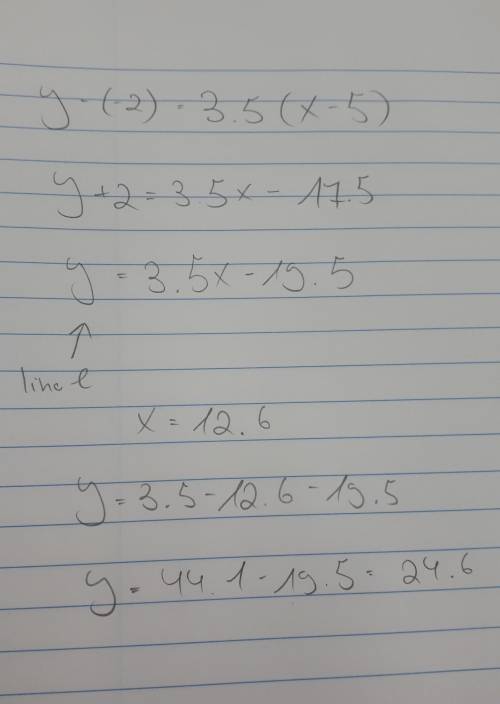 y - (-2) = 3.5 (x - 5)
y + 2 = 3.5x - 17.5
y = 3.5x - 19.5
↑
line l
x = 12.6
y = 3.5 - 12.6 - 19.5
y = 44.1 - 19.5 = 24.6